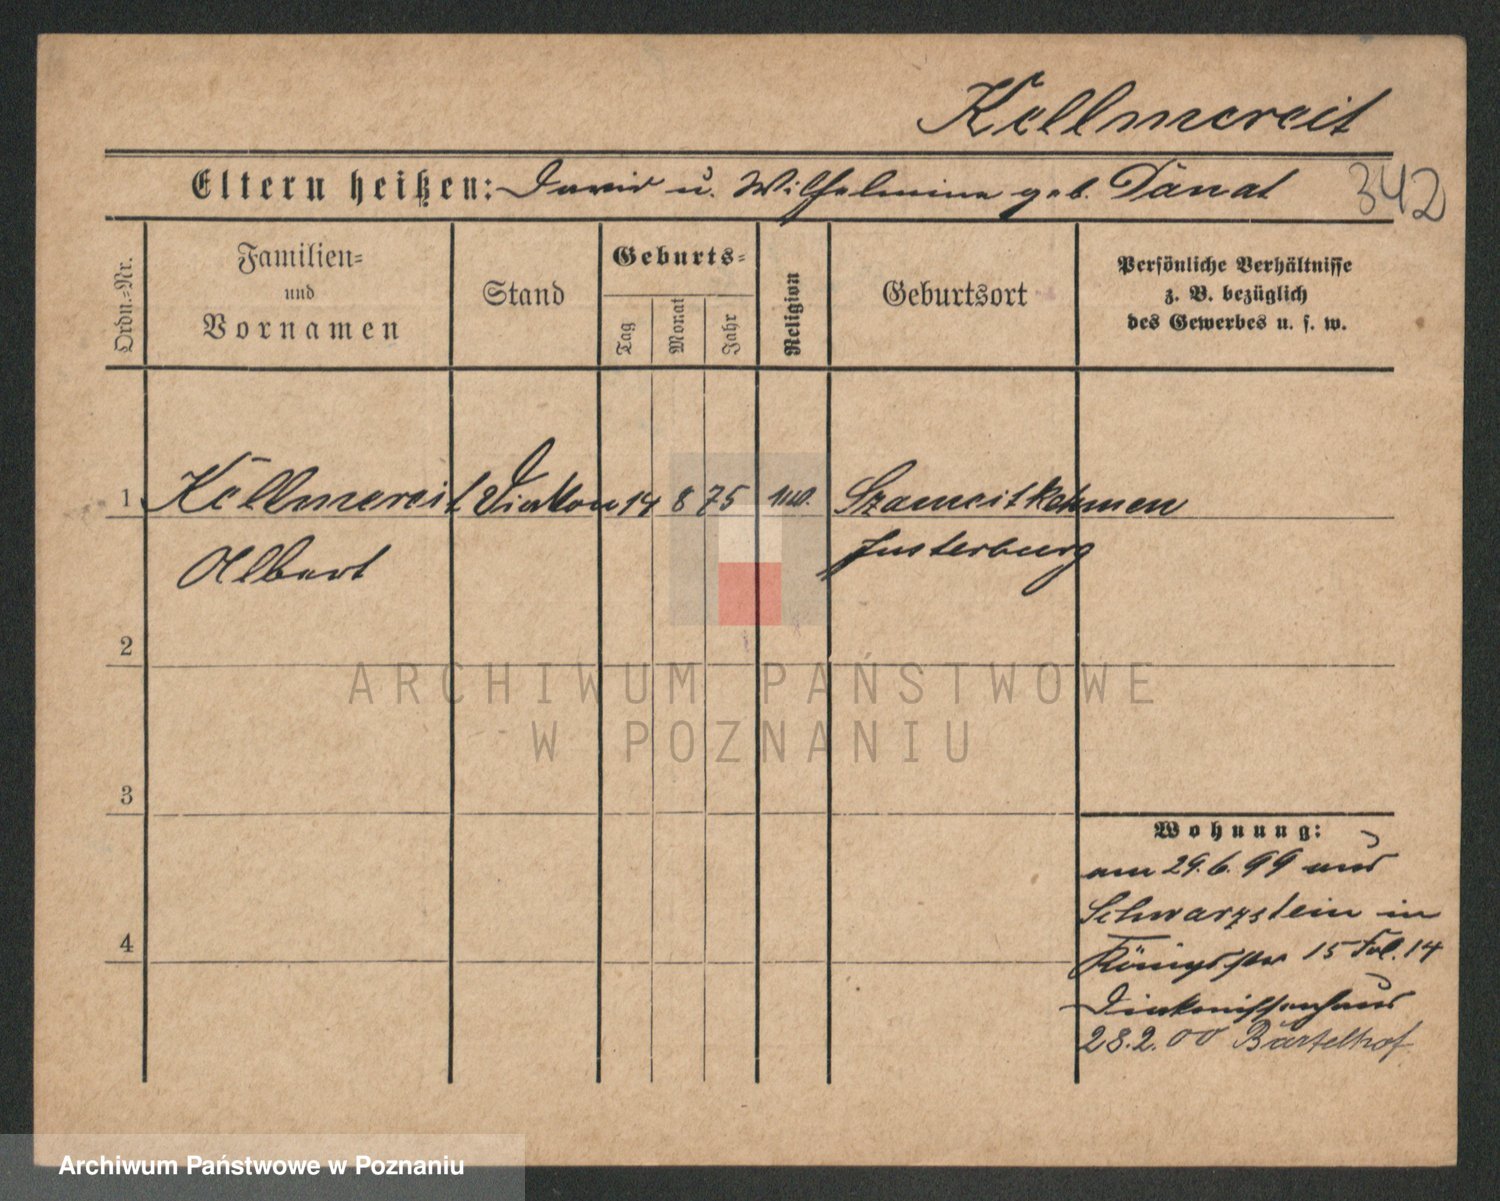 Kellmereit
Eltern heißen: David u. Wilhelmine geb. Danat
342
Ordn.=Nr.
Familien=
und
Vornamen
Stand
Geburts=
Tag
Monat
Jahr
Religion
Geburtsort
Persönliche Verhältnisse
z. B. bezüglich
des Gewerbes u. s. w.
1 Kellmereit Diakon 14 8 75 Szameitkehmen
Albert Insterburg
2
3
4
Wohnung:
am 29.6.99 aus
Schwarzstein in
Königstr 15 Fol. 14
Diakonissenhaus
28.2.00 Bartelhof
ARCHIWUM PAŃSTWOWE
W POZNANIU
Archiwum Państwowe w Poznaniu